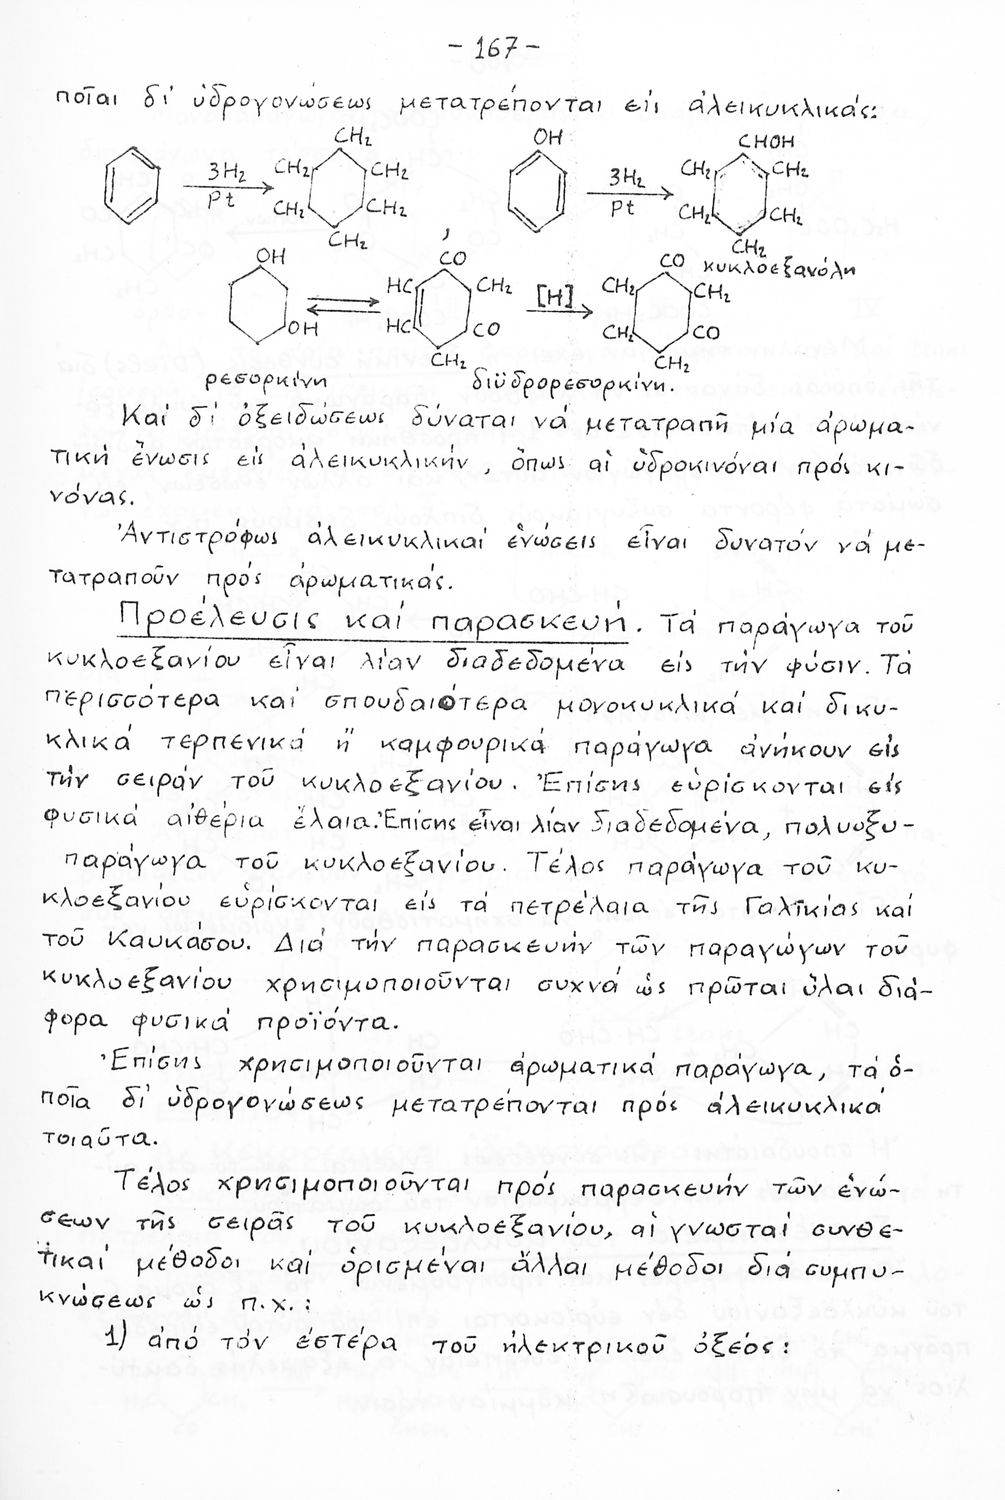 - 167 -
ποῖαι δι' ὑδρογονώσεως μετατρέπονται εἰς ἀλεικυκλικάς:
CH₂ OH CHOH
3H₂ CH₂ CH₂ 3H₂ CH₂ CH₂
Pt CH₂ CH₂ Pt CH₂ CH₂
CH₂ , CH₂
OH CO CO κυκλοεξανόλη
HC CH₂ [H] CH₂ CH₂
OH HC CO CH₂ CO
CH₂ CH₂
ρεσορκίνη διϋδρορεσορκίνη.
Καί δι' ὀξειδώσεως δύναται νά μετατραπῆ μία ἀρωμα-
τική ἕνωσις εἰς ἀλεικυκλικήν, ὅπως αἱ ὑδροκινόναι πρός κι-
νόνας.
Ἀντιστρόφως ἀλεικυκλικαί ἑνώσεις εἶναι δυνατόν νά με-
τατραποῦν πρός ἀρωματικάς.
Προέλευσις καί παρασκευή. Τά παράγωγα τοῦ
κυκλοεξανίου εἶναι λίαν διαδεδομένα εἰς τήν φύσιν. Τά
περισσότερα καί σπουδαιότερα μονοκυκλικά καί δικυ-
κλικά τερπενικά ἤ καμφουρικά παράγωγα ἀνήκουν εἰς
τήν σειράν τοῦ κυκλοεξανίου. Ἐπίσης εὑρίσκονται εἰς
φυσικά αἰθέρια ἔλαια. Ἐπίσης εἶναι λίαν διαδεδομένα, πολυοξυ-
παράγωγα τοῦ κυκλοεξανίου. Τέλος παράγωγα τοῦ κυ-
κλοεξανίου εὑρίσκονται εἰς τά πετρέλαια τῆς Γαλικίας καί
τοῦ Καυκάσου. Διά τήν παρασκευήν τῶν παραγώγων τοῦ
κυκλοεξανίου χρησιμοποιοῦνται συχνά ὡς πρῶται ὗλαι διά-
φορα φυσικά προϊόντα.
Ἐπίσης χρησιμοποιοῦνται ἀρωματικά παράγωγα, τά ὁ-
ποῖα δι' ὑδρογονώσεως μετατρέπονται πρός ἀλεικυκλικά
τοιαῦτα.
Τέλος χρησιμοποιοῦνται πρός παρασκευήν τῶν ἑνώ-
σεων τῆς σειρᾶς τοῦ κυκλοεξανίου, αἱ γνωσταί συνθε-
τικαί μέθοδοι καί ὁρισμέναι ἄλλαι μέθοδοι διά συμπυ-
κνώσεως ὡς π.χ.:
1) ἀπό τόν ἐστέρα τοῦ ἠλεκτρικοῦ ὀξέος: